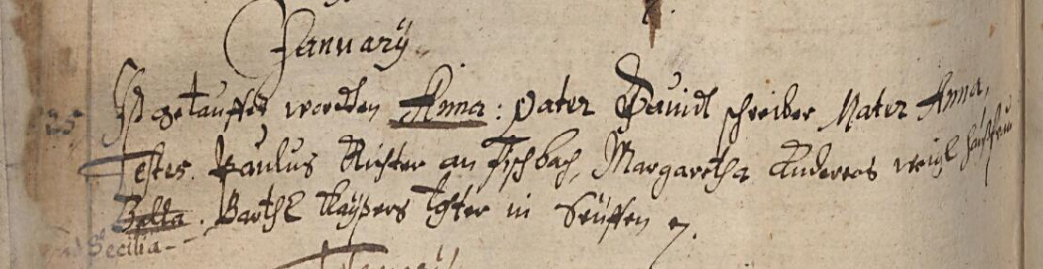 Januarÿ
25 Ist getauffet worden Anna: Pater Dauidt schreiber Mater Anna,
Testes. Paulus Richter am Fischbach, Margaretha Andereas weigl haußfrau
Barthl Kaÿßers tochter in Seuffen
Secilia